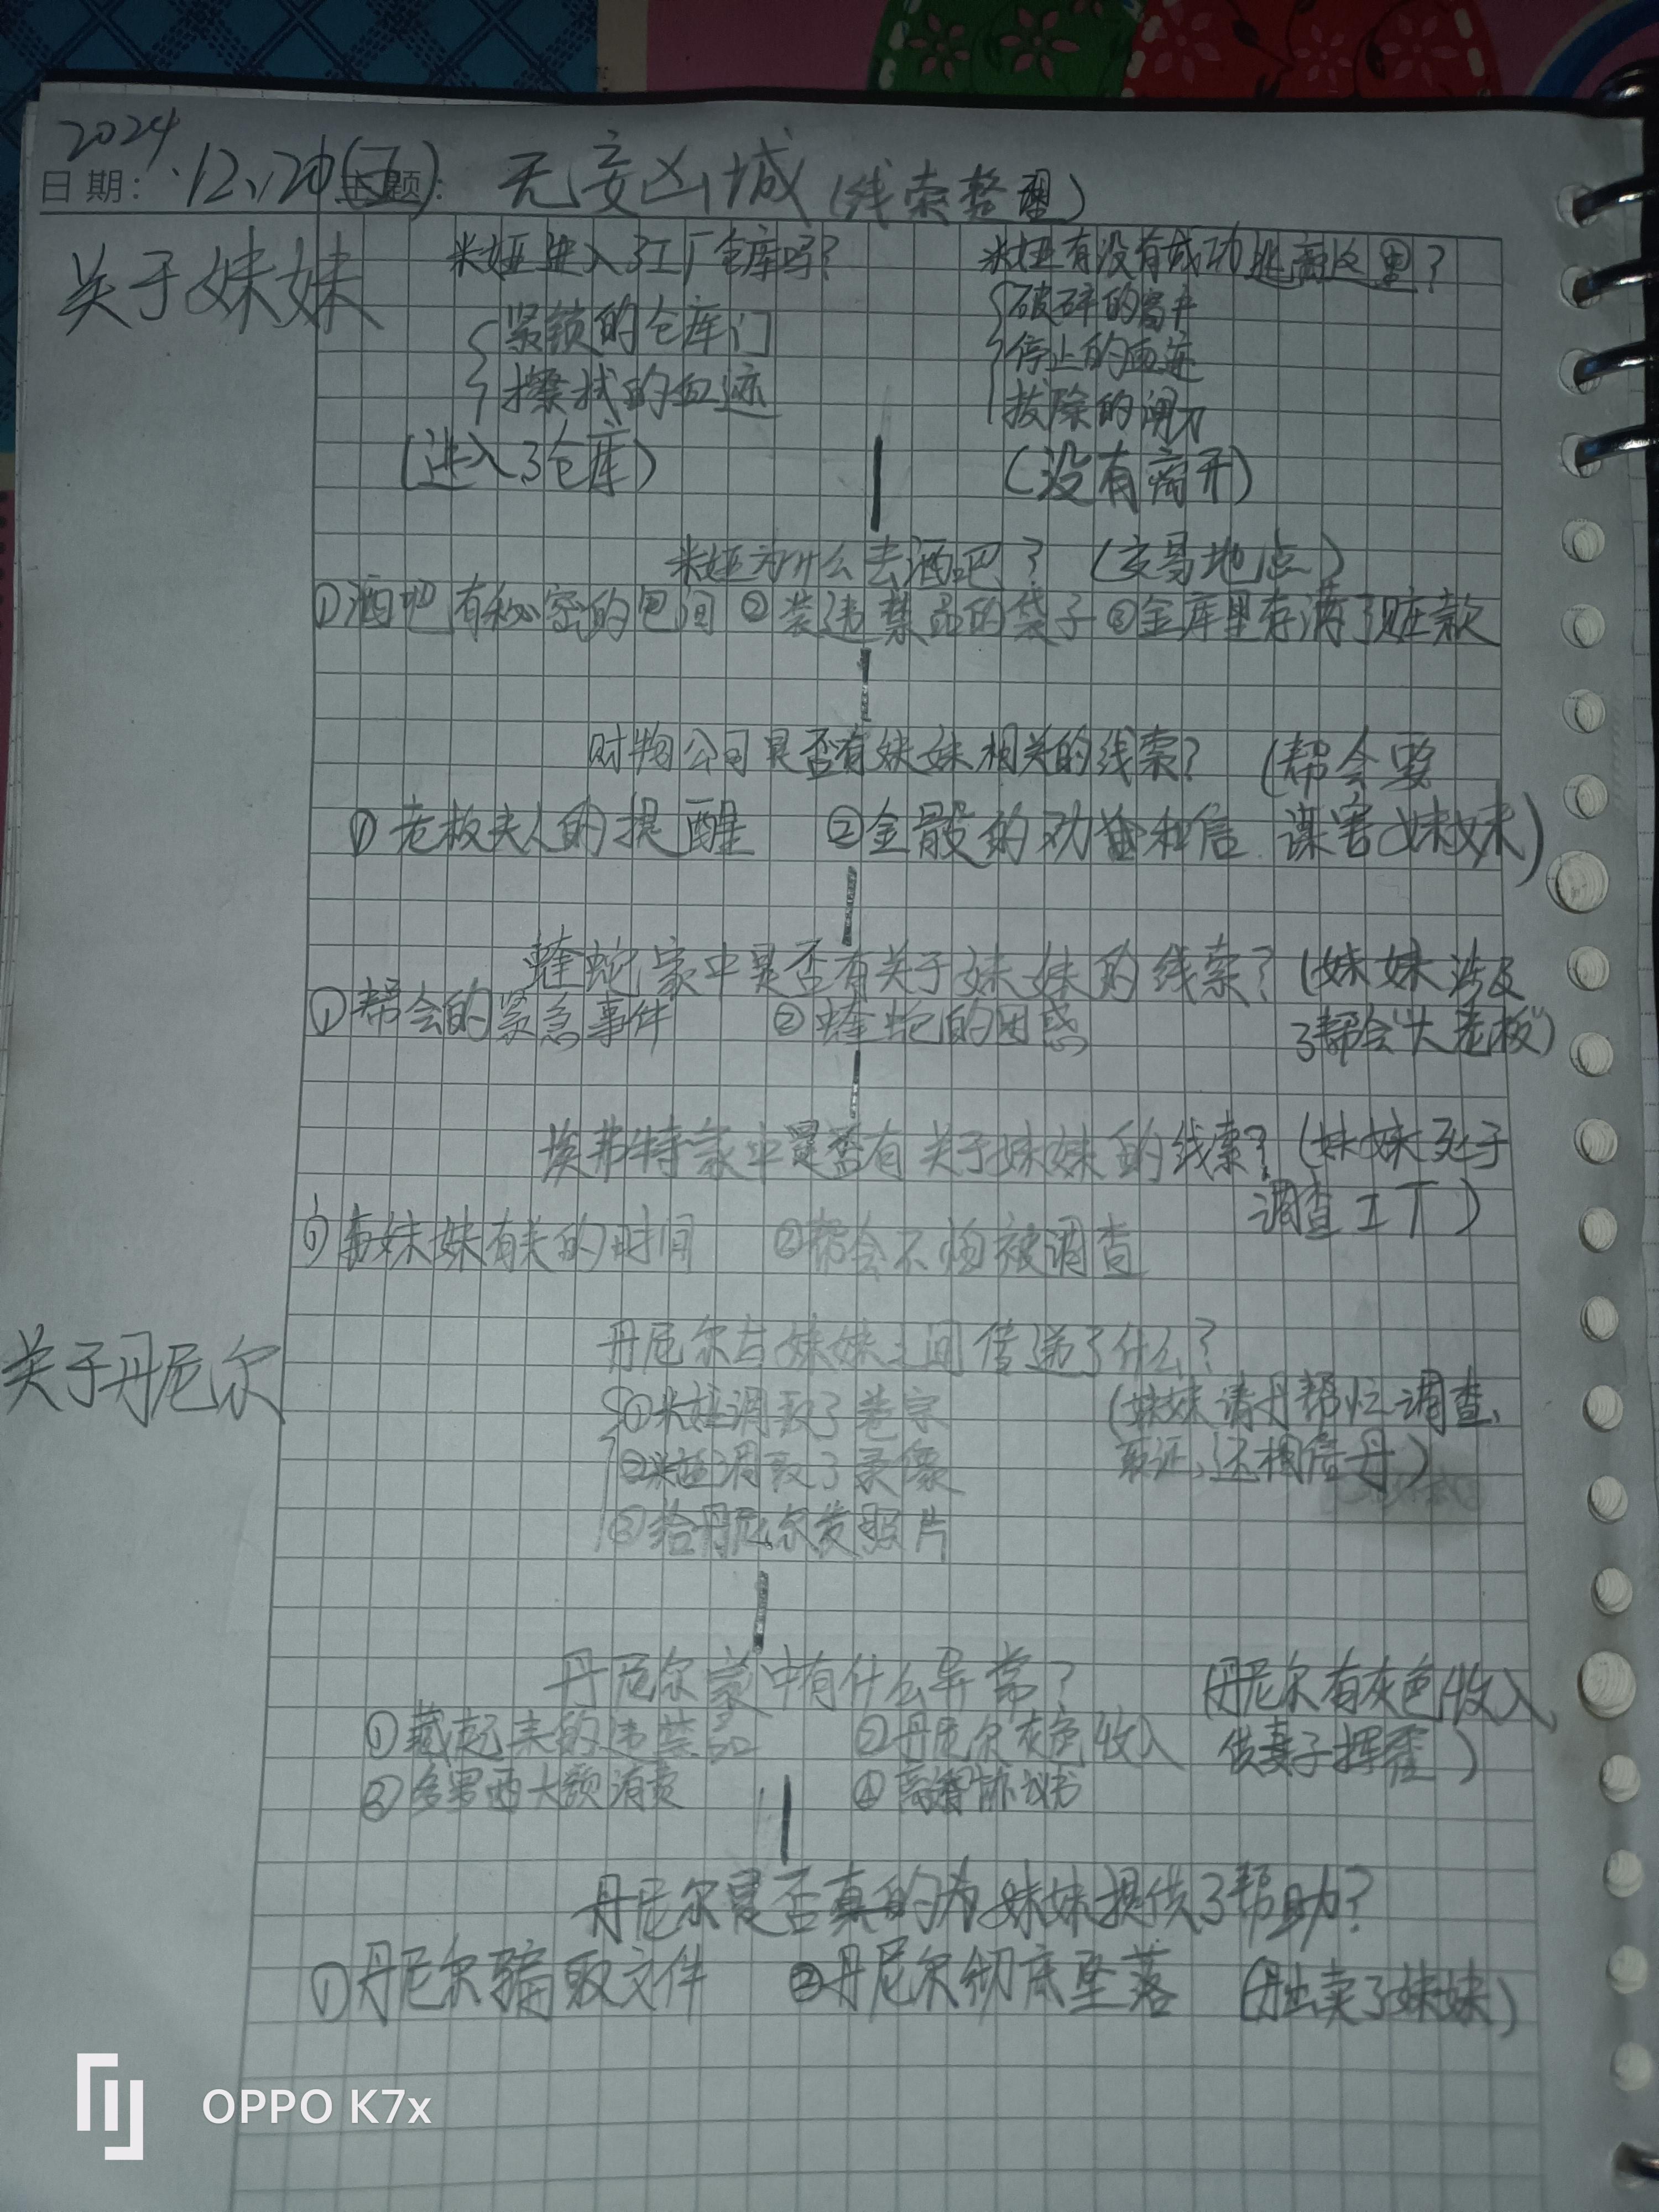 2024
日期: 12.20(五) 主题: 无妄凶城(线索整理)
关于妹妹
米娅进入了工厂仓库吗? 米娅有没有成功逃离这里?
紧锁的仓库门 破碎的窗户
擦拭的血迹 停止的血迹
拔除的闸刀
(进入了仓库) (没有离开)
米娅为什么去酒吧? (交易地点)
①酒吧有秘密的包间 ②装违禁品的袋子 ③金库里存满了赃款
财物公司是否有妹妹相关的线索? (帮会要
①老板夫人的提醒 ②金骰的劝 和信. 谋害妹妹)
蝰蛇家中是否有关于妹妹的线索? (妹妹涉及
①帮会的紧急事件 ②蝰蛇的困惑 了帮会“大老板”)
埃弗特家中是否有关于妹妹的线索? (妹妹死于
调查工厂)
①与妹妹有关的时间 ②帮会不怕被调查
关于丹尼尔
丹尼尔与妹妹之间传递了什么?
①米娅调取了卷宗 (妹妹请丹帮忙调查、
②米娅调取了录像 取证,还相信丹)
③给丹尼尔发照片
丹尼尔家中有什么异常? (丹尼尔有灰色收入
①藏起来的违禁品 ②丹尼尔灰色收入 供妻子挥霍)
③多罗西大额消费 ④离婚协议书
丹尼尔是否真的为妹妹提供了帮助?
①丹尼尔骗取文件 ②丹尼尔彻底坠落 (丹出卖了妹妹)
OPPO K7x